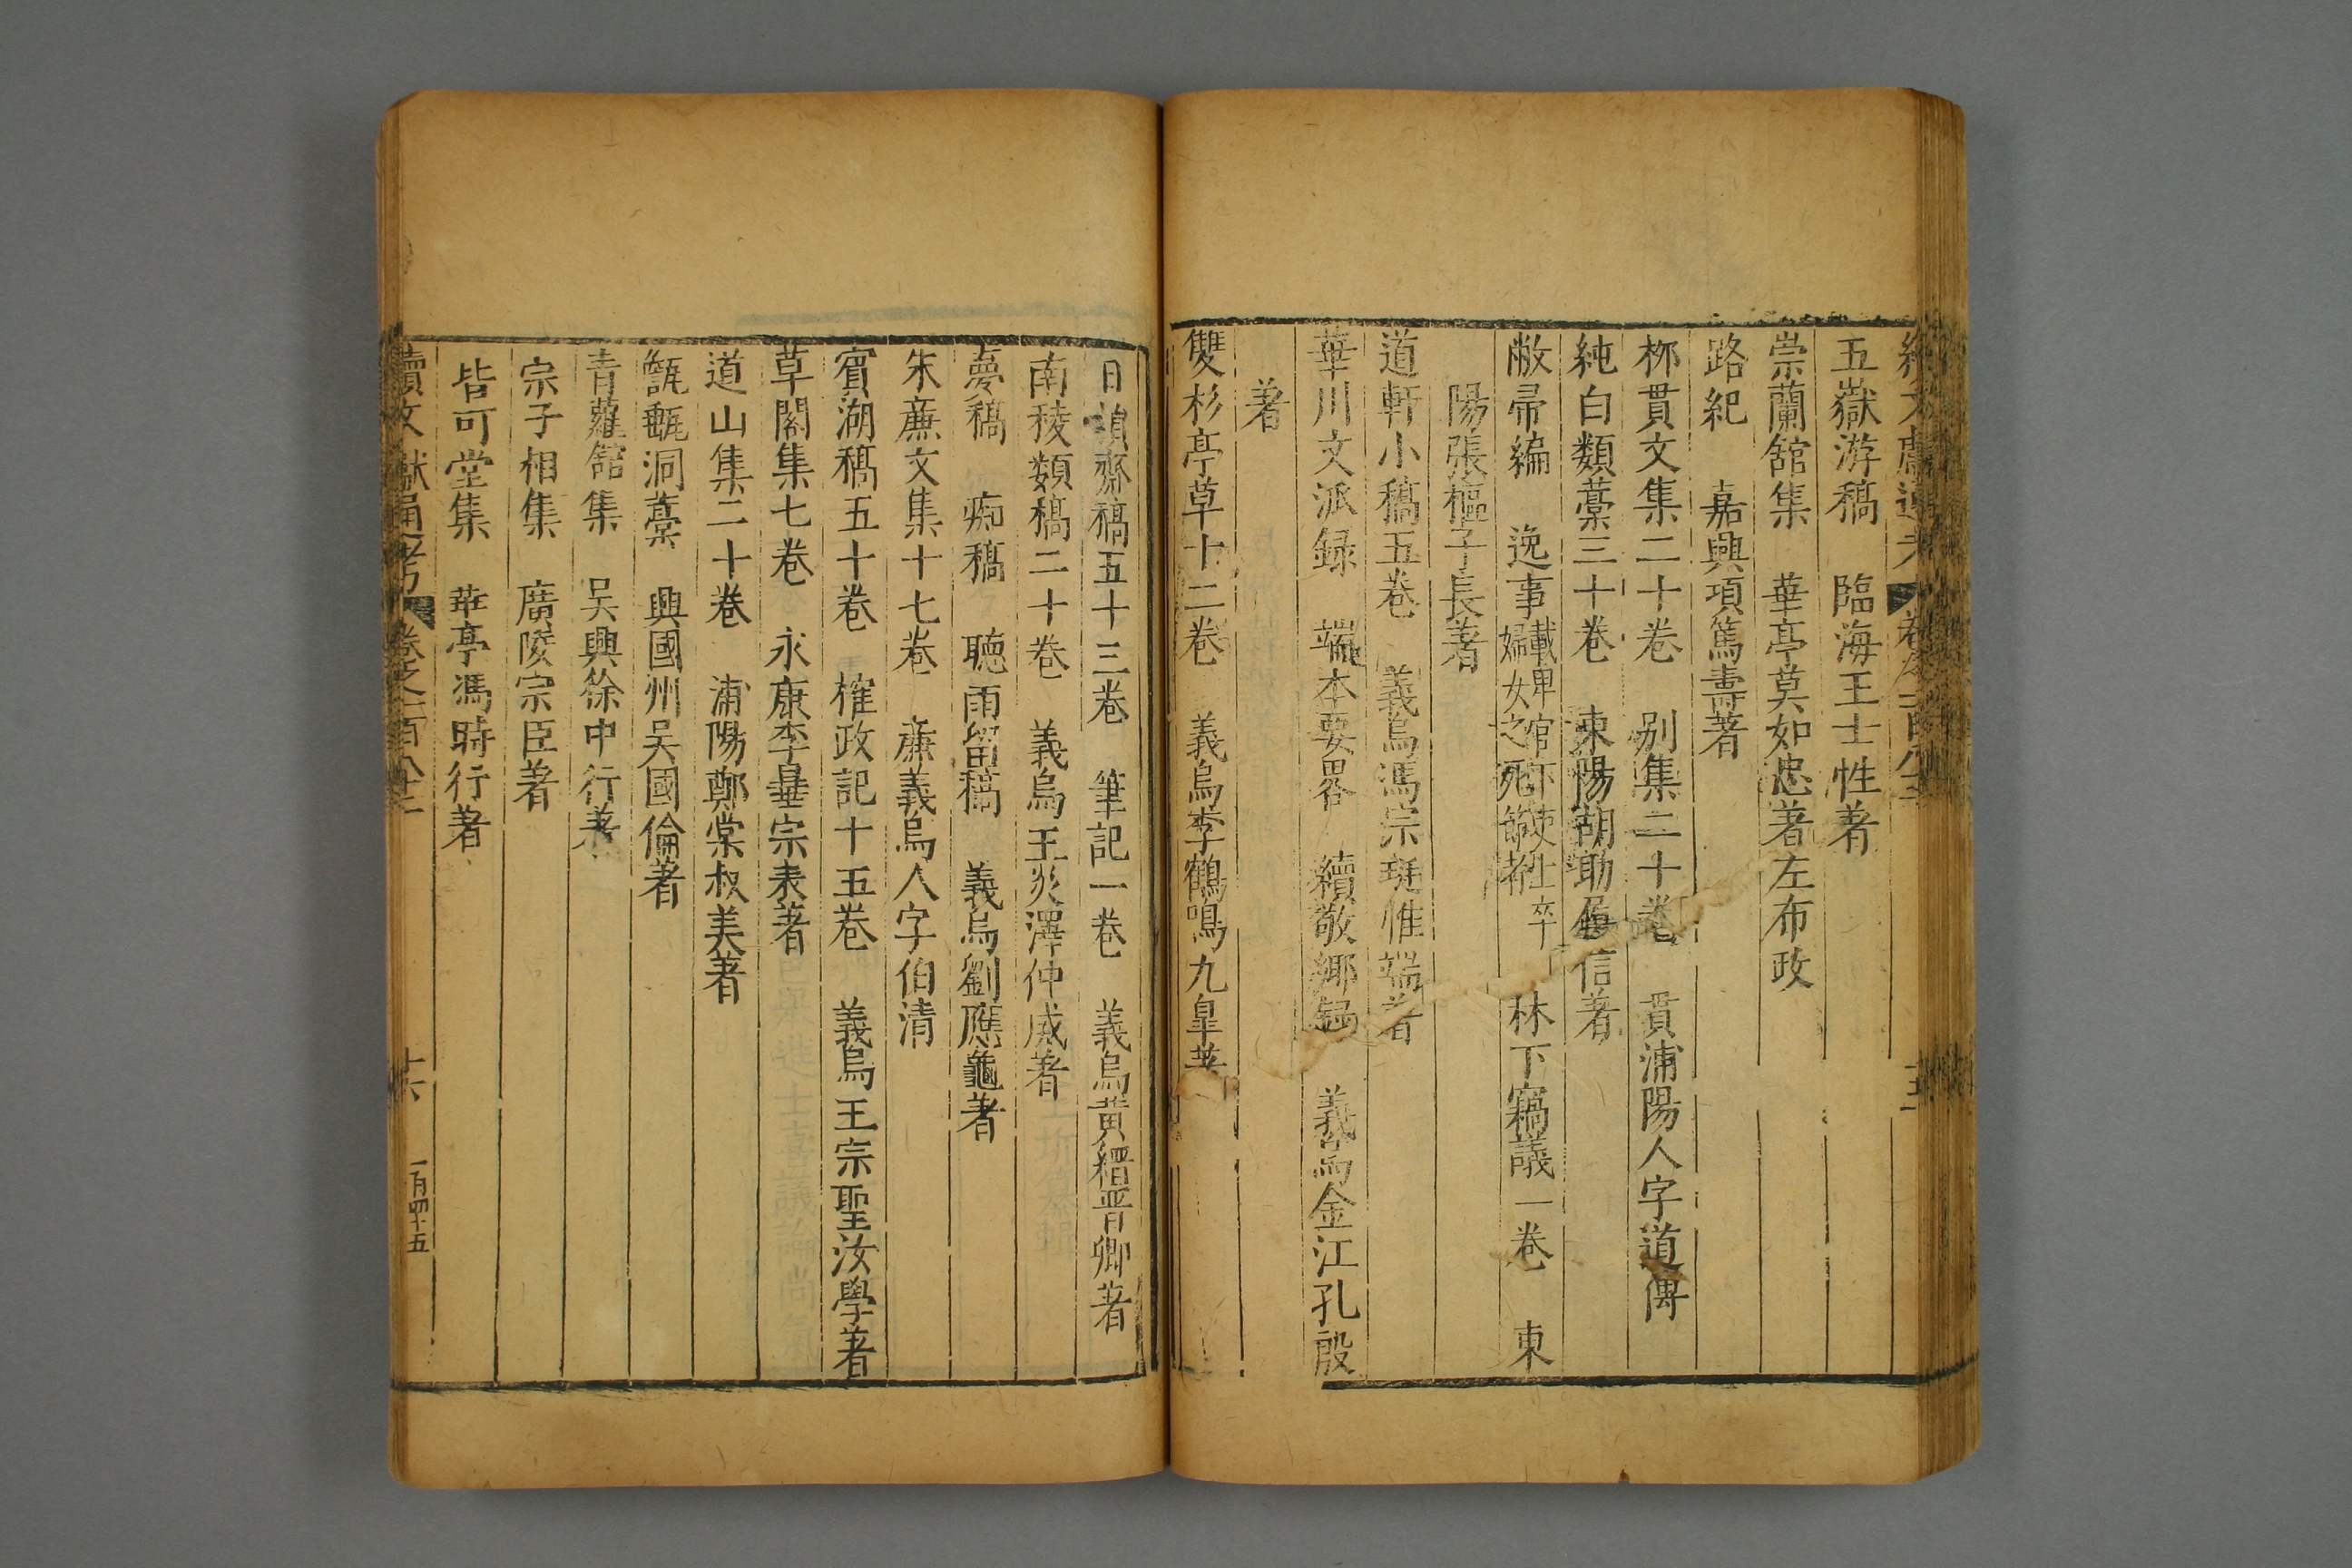 五嶽游稿　臨海王士性著
崇蘭舘集　華亭莫如忠著左布政
路紀　嘉興項篤壽著
桺貫文集二十卷　别集二十卷　貫浦陽人字道傳
純白類藁三十卷　東陽胡助信著
敝帚編　逸事載甲官下吏士卒婦女之死節者　林下竊議一卷　東
陽張樞子長著
道軒小稿五卷　義烏馮宗珽惟端著
華川文派録　端本要畧　續敬鄉録　義烏金江孔殷
著
雙杉亭草十二卷　義烏李鶴鳴九皐著
日損齋稿五十三卷　筆記一卷　義烏黄溍晋卿著
南稜類稿二十卷　義烏王炎澤仲威著
夢稿　痴稿　聽雨留稿　義烏劉應龜著
朱亷文集十七卷　亷義烏人字伯清
賓湖稿五十卷　榷政記十五卷　義烏王宗聖汝學著
草閣集七卷　永康李曅宗表著
道山集二十卷　浦陽鄭棠叔美著
甔甀洞藁　興國州吴國倫著
青蘿舘集　吴興徐中行著
宗子相集　廣陵宗臣著
皆可堂集　華亭馮時行著
續文獻通考　卷之一百八十二　十六　一百四十五